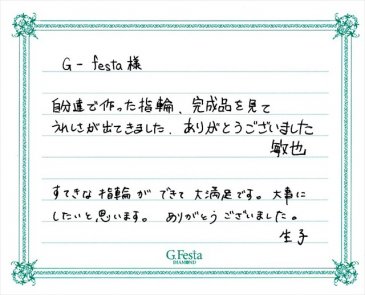 G-festa様
自分達で作った指輪、完成品を見て
うれしさが出てきました。ありがとうございました
敏也
すてきな指輪ができて大満足です。大事に
したいと思います。ありがとうございました。
生子
G.Festa
DIAMOND